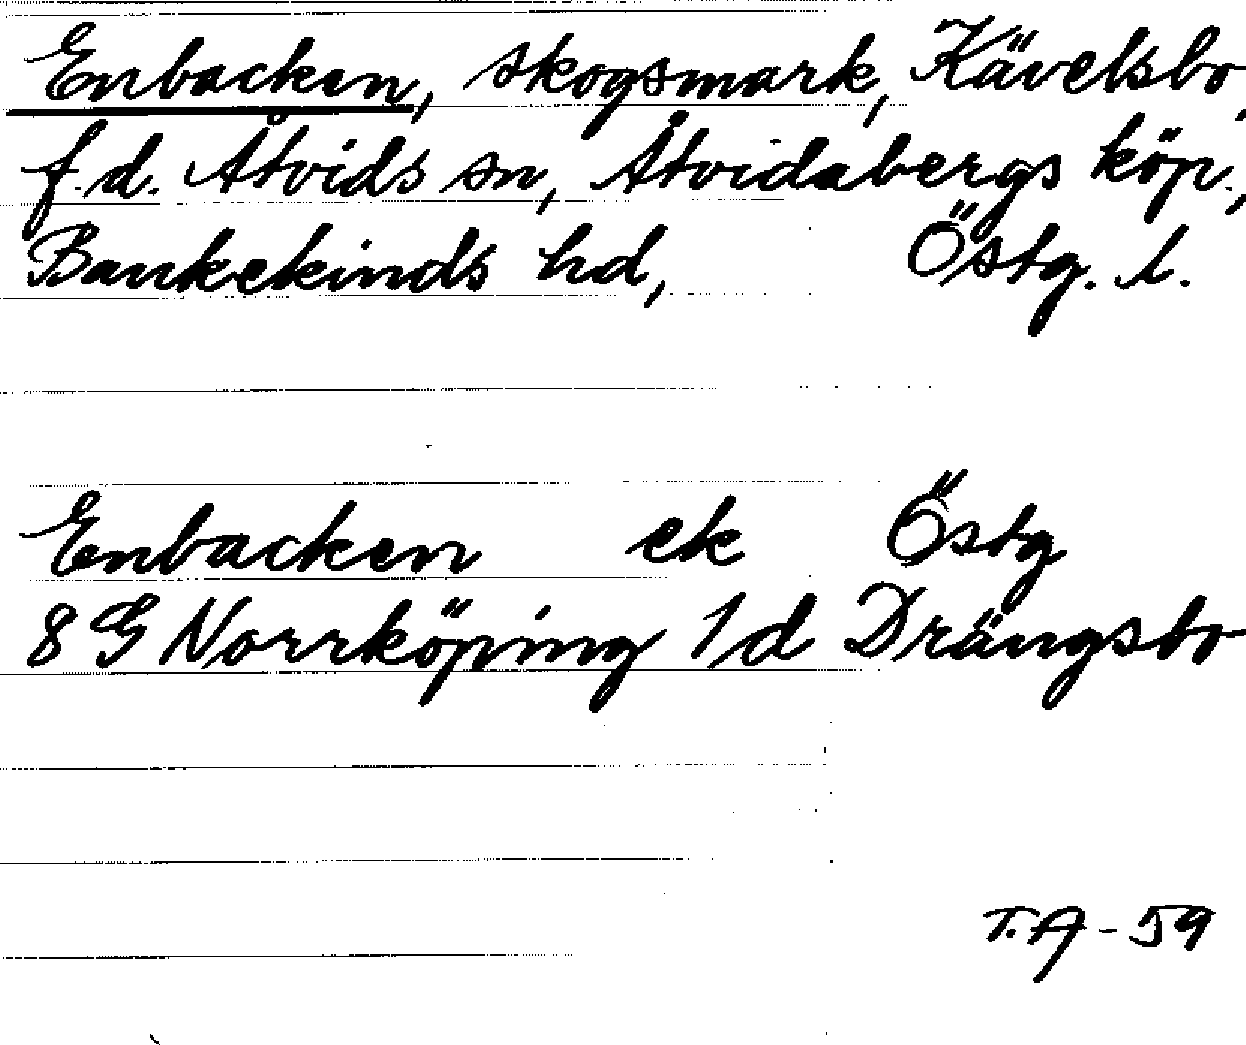 Enbacken, skogsmark, Kävelsbo,
f.d. Åtvids sn, Åtvidabergs köp.,
Bankekinds hd, Östg. l.
Enbacken ek Östg
8 G Norrköping 1 d Drängsbo
T.A - 59